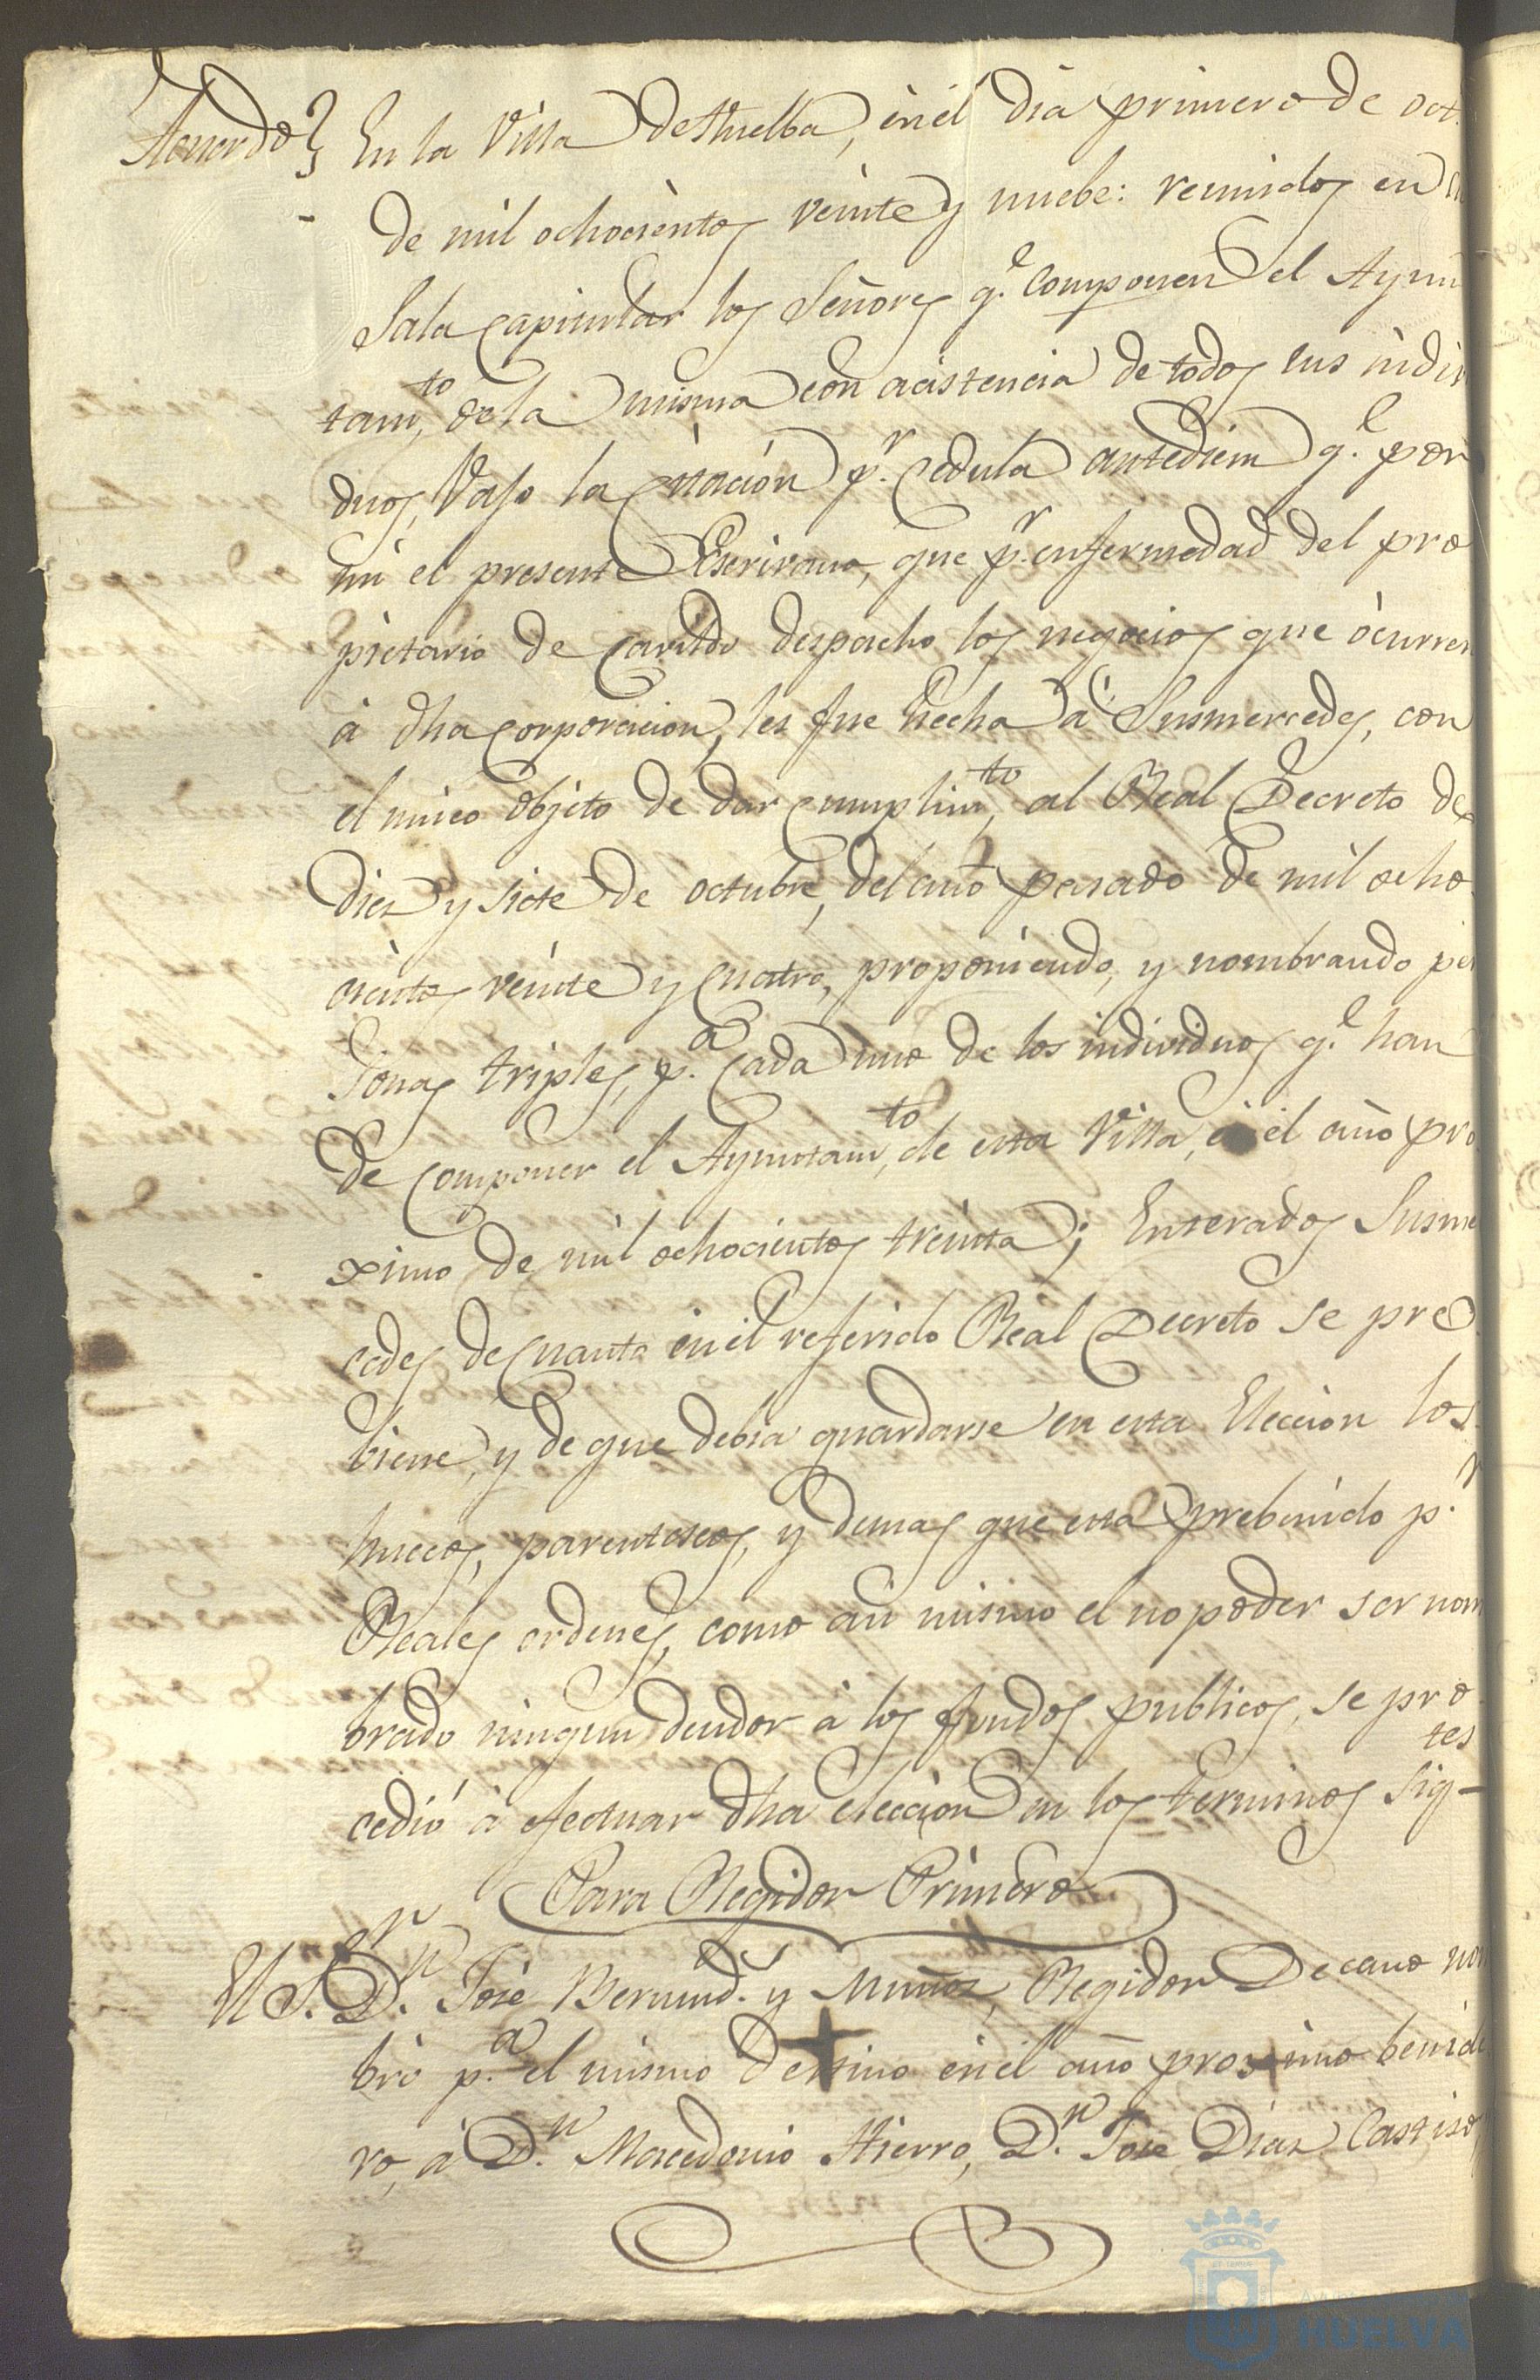 Acuerdo} En la Villa de Huelba, en el dia primero de oct.
de mil ochocientos veinte y nuebe: reunidos en su
Sala capitular los Señores q.e componen el Ayun
tam,to de la misma con acistencia de todos sus indivi
duos, vajo la citación p.r cedula antediem q.e por
mi el presente Escrivano, que p.r enfermedad del pro
pietario de Cavildo despacho los negocios que ocurren
à dha corporacion, les fue hecha à Susmercedes, con
el unico objeto de dar cumplim,to al Real Decreto de
Diez y siete de octubre, del año pasado de mil ocho
cientos veinte y cuatro, proponiendo, y nombrando per
sonas triples, p.a cada uno de los individuos q.e han
de componer el Ayuntam,to de esta Villa, en el año pro
ximo de mil ochocientos treinta; Enterados Susmer
cedes de cuanto en el referido Real Decreto se pre
biene, y de que debia guardarse en esta Eleccion los
huecos, parentescos, y demas que esta prebenido p.r
Reales ordenes, como asi mismo el no poder ser nom
brado ningun deudor à los fondos publicos, se pro
cedió à efectuar dha elección en los terminos sig-tes
Para Regidor Primero
El S.r D.n José Bermud.s y Muñoz, Regidor Decano nom
bró p.a el mismo destino en el año proximo benide
ro, à D.n Macedonio Hierro, D.n Jose Diaz Castiso
HUELVA